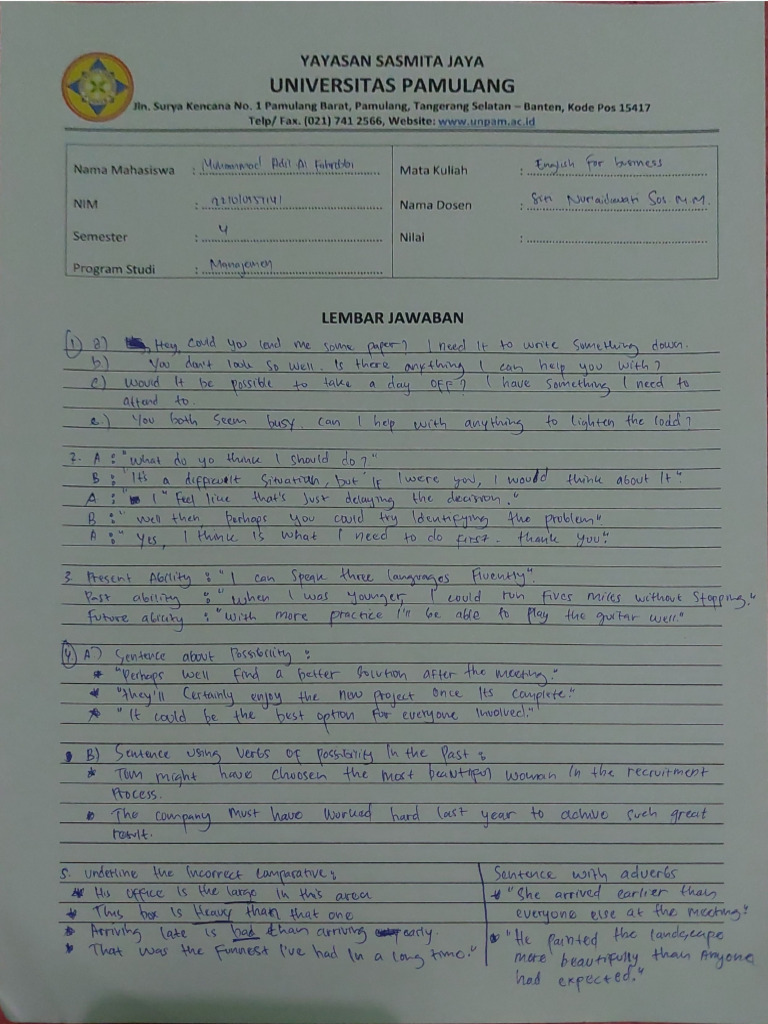 YAYASAN SASMITA JAYA
UNIVERSITAS PAMULANG
Jln. Surya Kencana No. 1 Pamulang Barat, Pamulang, Tangerang Selatan – Banten, Kode Pos 15417
Telp/ Fax. (021) 741 2566, Website: www.unpam.ac.id
Nama Mahasiswa : Muhammad Adil Al
Mata Kuliah : English for business
NIM :
Nama Dosen : Siti Nuraidawati Sos M.M.
Semester : 4
Nilai :
Program Studi : Manajemen
LEMBAR JAWABAN
1 a) Hey, Could you lend me some paper? I need it to write something down.
b) You don't look so well. Is there anything I can help you with?
c) Would it be possible to take a day off? I have something I need to
attend to.
e.) You both seem busy. can I help with anything to lighten the load?
2. A : "What do yo think I should do?"
B : "It's a difficult situation, but if I were you, I would think about it"
A : "I" Feel like that's Just delaying the decision."
B : "Well then, perhaps you could try identifying the problem"
A : "Yes, I think is what I need to do first. thank you."
3. Present Ability : "I can speak three languages fluently".
Past ability : "When I was younger, I could run fives miles without stopping."
Future ability : "With more practice I'll be able to play the guitar well."
4. A.) Sentence about Possibility :
* "Perhaps well find a better solution after the meeting."
* "they'll Certainly enjoy the new project once its complete."
* "It could be the best option for everyone involved."
B) Sentence using verbs of possibility in the past :
* Tom might have choosen the most beautiful woman in the recruitment
Process.
* The company must have worked hard last year to achive such great
result.
5. underline the incorrect comparative :
* His office is the large in this area
* This box is Heavy than that one
* Arriving late is bad than arriving early.
* That was the funnest I've had in a long time."
Sentence with adverbs
* "She arrived earlier than
everyone else at the meeting."
* "He painted the landscape
more beautifully than Anyone
had expected."